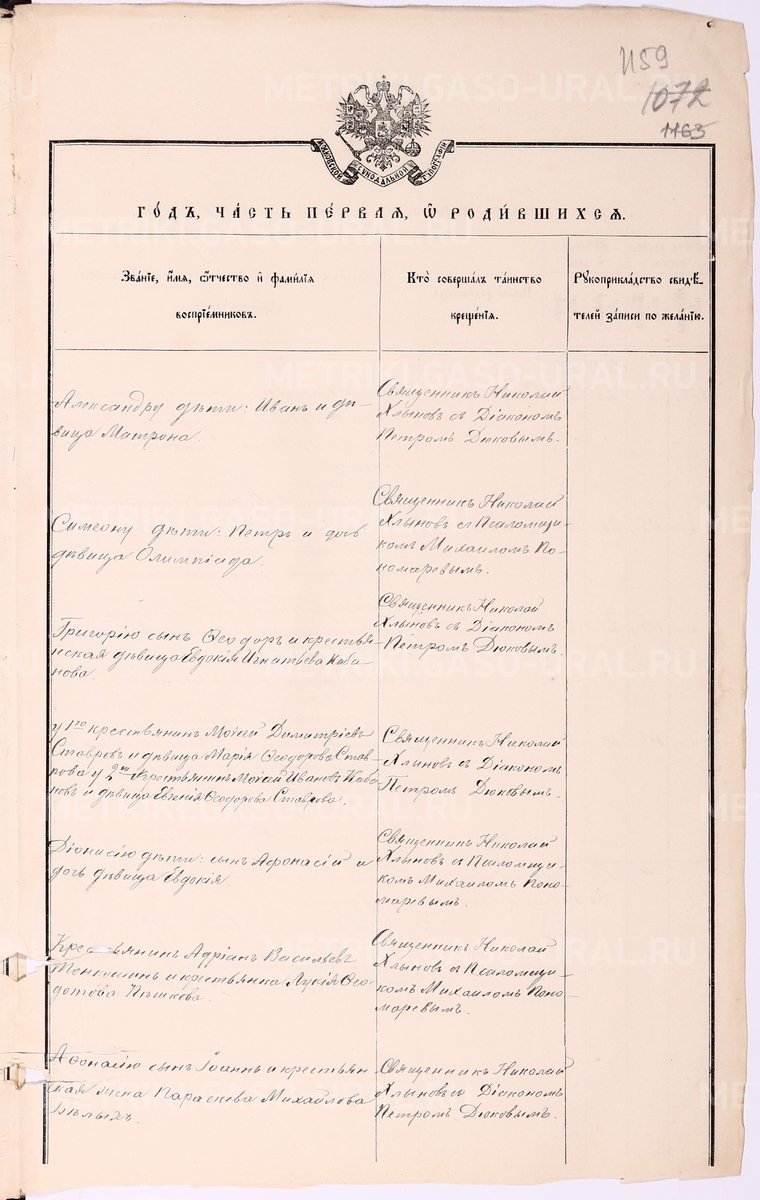 1159
1072
1163
МОСКОВСКОЙ СѴНОДАЛЬНОЙ ТѴПОГРАФІИ
ГО́ДЪ, ЧА́СТЬ ПЕ́РВАЯ, Ѽ РОДИ́ВШИХСЯ.
Зва́нїе, и҆́мя, ѻ҆́тчество и҆ фами́лїя
воспрїе́мниковъ.
Кто̀ соверша́лъ та́инство
креще́нїя.
Рꙋкоприкла́дство свидѣ́-
телей за́писи по жела́нїю.
Александру дѣти: Иванъ и дѣ-
вица Матрона.
Священникъ Николай
Хлыновъ съ Діакономъ
Петромъ Дюковымъ.
Симеону дѣти: Петръ и дочь
дѣвица Олимпіада.
Священникъ Николай
Хлыновъ съ Псаломщи-
комъ Михаиломъ По-
номаревымъ.
Григорію сынъ Ѳеодоръ и крестья-
нская дѣвица Евдокія Игнатьева Каба
нова.
Священникъ Николай
Хлыновъ съ Діакономъ
Петромъ Дюковымъ.
у 1го крестьянинъ Моисей Димитріевъ
Ставровъ и дѣвица Марія Ѳеодорова Став-
рова у 2го Крестьянинъ Моисей Ивановъ Каба
новъ и дѣвица Евгенія Ѳеодорова Ставрова.
Священникъ Николай
Хлыновъ съ Діакономъ
Петромъ Дюковымъ.
Діонисію дѣти: сынъ Аѳонасій и
дочь дѣвица Евдокія.
Священникъ Николай
Хлыновъ съ Псаломщи-
комъ Михаиломъ Поно-
маревымъ.
Крестьянинъ Адріанъ Васильевъ
и крестьянка Лукія Ѳео-
дотова Пѣшкова.
Священникъ Николай
Хлыновъ съ Псаломщи-
комъ Михаиломъ Поно-
маревымъ.
Аѳонасію сынъ Іоаннъ и крестьян
ская жена Параскева Михайлова
Бѣлыхъ.
Священникъ Николай
Хлыновъ съ Діакономъ
Петромъ Дюковымъ.
METRIKI.GASO-URAL.RU